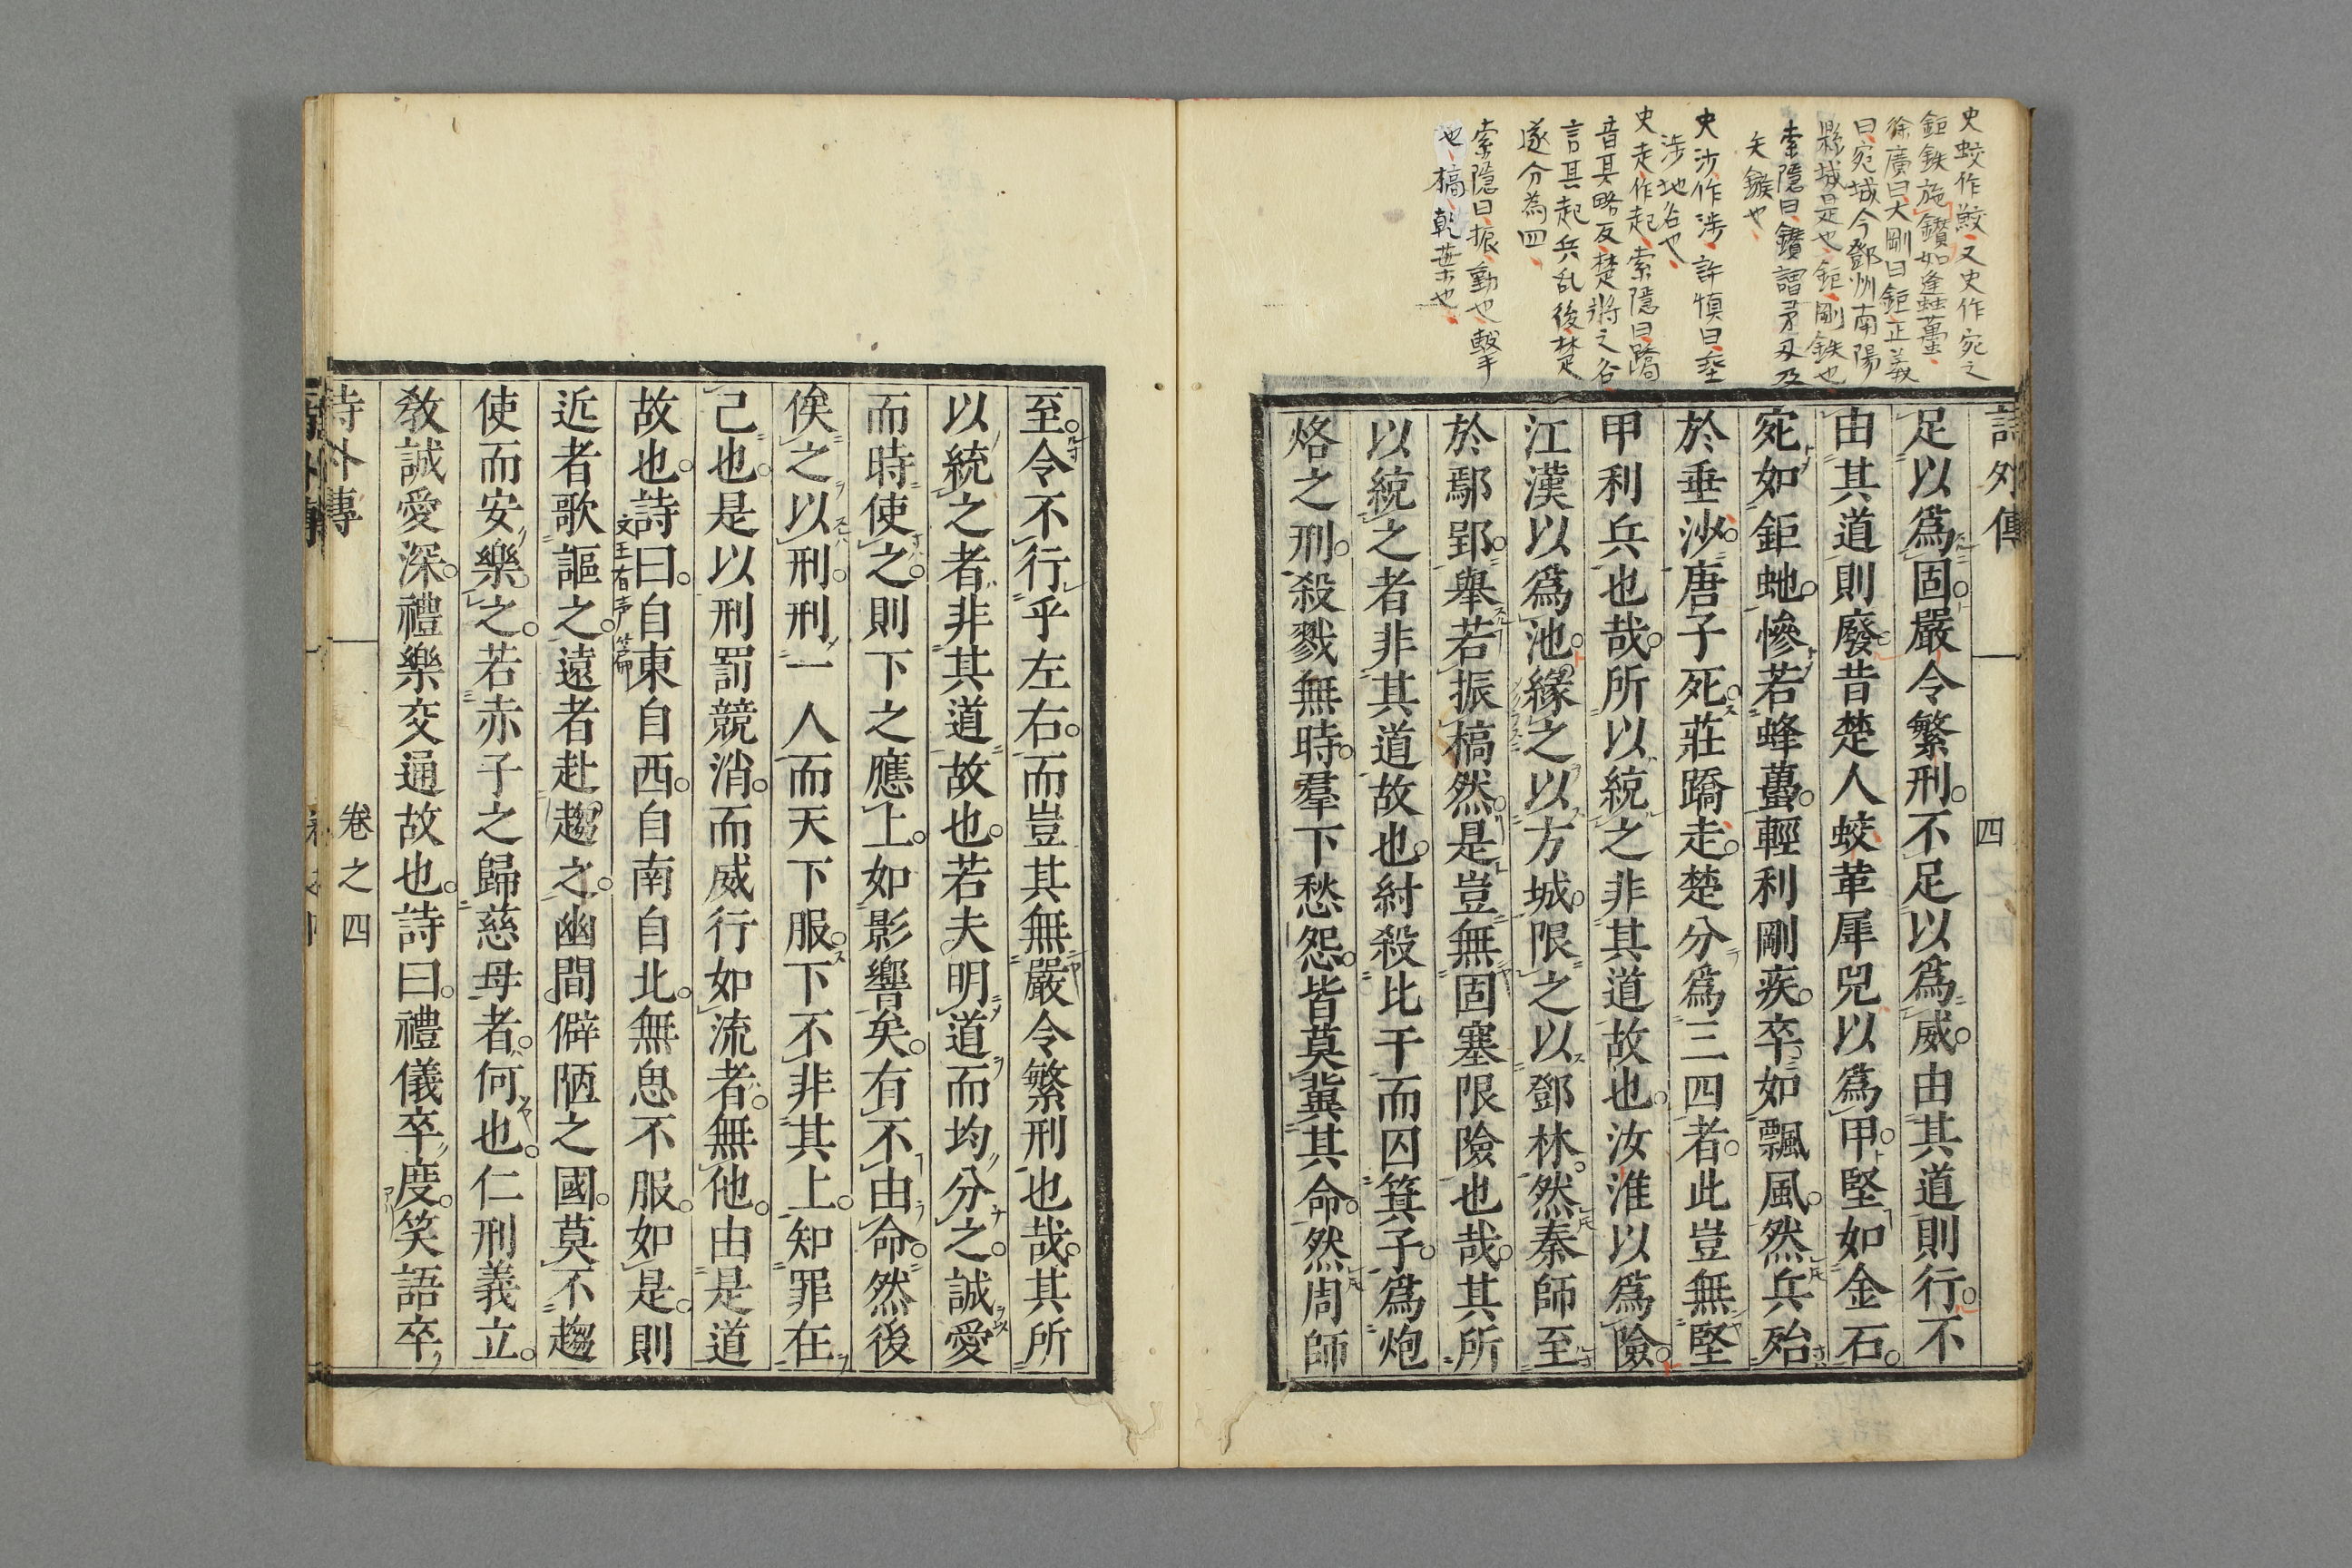 史蛟作鮫又史作宛之
鉅鉄施鑚如逢蛙蠆
徐廣曰大剛曰鉅正義
曰宛城今鄧州南陽
縣城是也鉅剛鉄也
索隱曰鑚謂矛刃及
矢鏃也
史沙作涉許愼曰垂
涉地名也
史走作起索隱曰蹻
音其略反楚將之名
言其起兵乱後楚
遂分為四
索隱曰振動也擊
也槁乾葉也
詩外傳
四
足以爲固嚴令繁刑不足以爲威由其道則行不
由其道則廢昔楚人蛟革犀兕以爲甲堅如金石
宛如鉅虵慘若蜂蠆輕利剛疾卒如飄風然兵殆
於垂沙唐子死莊蹻走楚分爲三四者此豈無堅
甲利兵也哉所以統之非其道故也汝淮以爲險
江漢以爲池緣之以方城限之以鄧林然秦師至
於鄢郢舉若振槁然是豈無固塞限險也哉其所
以統之者非其道故也紂殺比干而囚箕子爲炮
烙之刑殺戮無時羣下愁怨皆莫冀其命然周師
至令不行乎左右而豈其無嚴令繁刑也哉其所
以統之者非其道故也若夫明道而均分之誠愛
而時使之則下之應上如影響矣有不由命然後
俟之以刑刑一人而天下服下不非其上知罪在
己也是以刑罰競消而威行如流者無他由是道
故也詩曰自東自西自南自北無思不服如是則
文王有声篇
近者歌謳之遠者赴趨之幽間僻陋之國莫不趨
使而安樂之若赤子之歸慈母者何也仁刑義立
敎誠愛深禮樂交通故也詩曰禮儀卒度笑語卒
詩外傳
卷之四